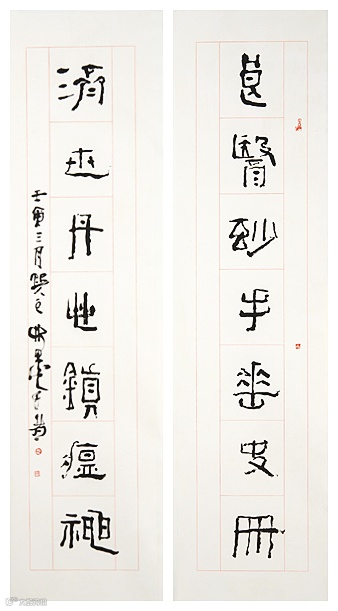 良醫妙手垂史冊
濟世丹心鎮瘟神
壬寅三月